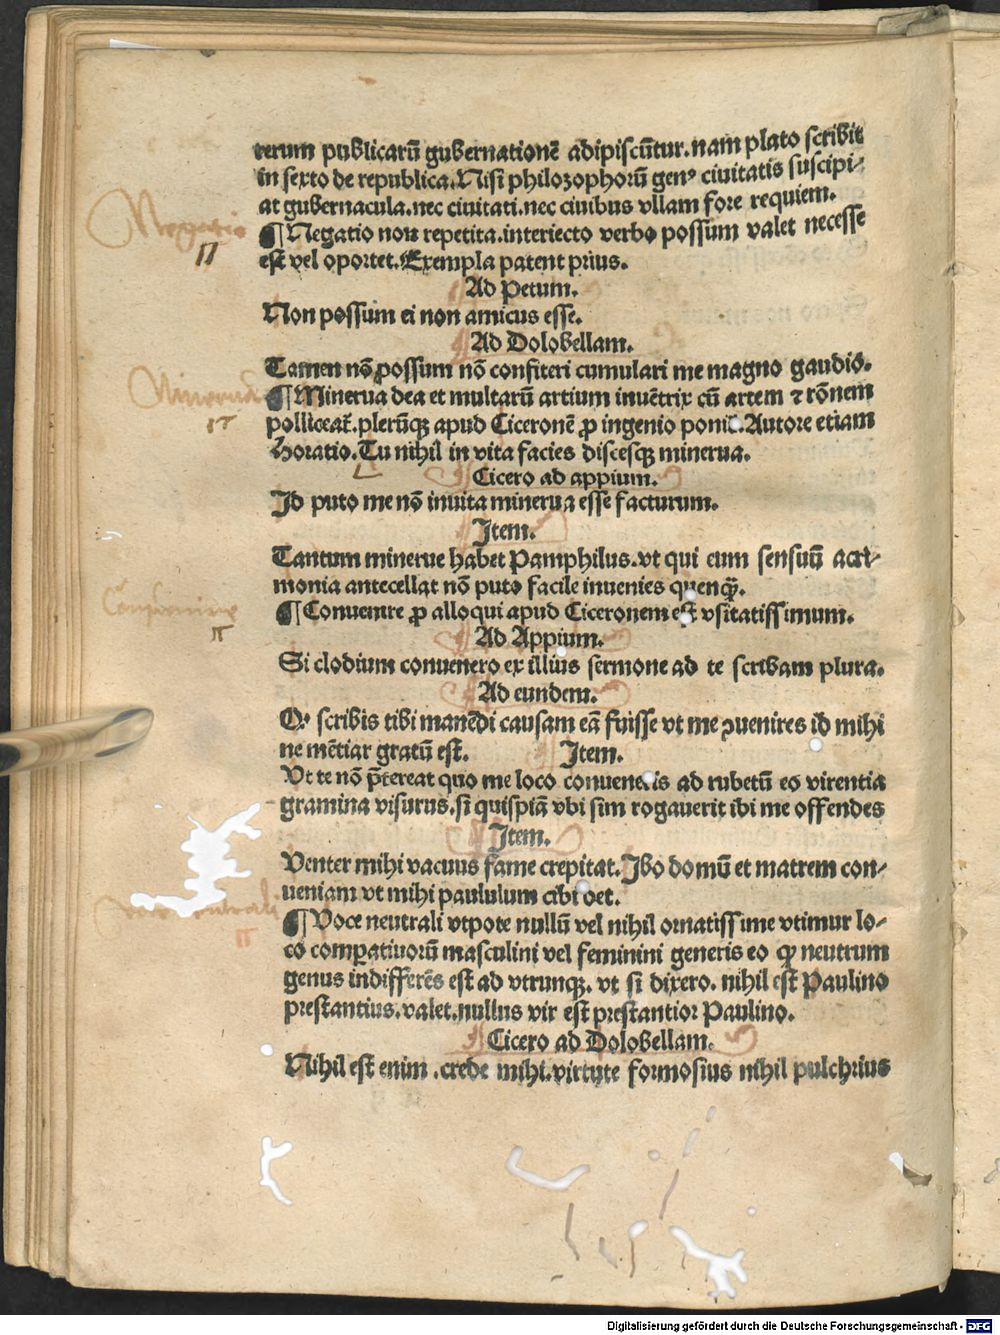 rerum publicarū gubernationē adipiscūtur. nam plato scribit
in sexto de republica. Nisi philozophorū genꝰ ciuitatis suscipi-
at gubernacula. nec ciuitati. nec ciuibus vllam fore requiem.
¶ Negatio non repetita. interiecto verbo possum valet necesse
est vel oportet. Exempla patent prius.
Ad Petum.
Non possum ei non amicus esse.
Ad Dolobellam.
Tamen nō possum nō confiteri cumulari me magno gaudio.
¶ Minerua dea et multarū artium inuētrix cū artem ⁊ rōnem
polliceat̄. plerūqꝫ apud Ciceronē ꝓ ingenio ponit. Autore etiam
Horatio. Tu nihil in vita facies discesqꝫ minerua.
Cicero ad appium.
Id puto me nō inuita minerua esse facturum.
Item.
Tantum minerue habet Pamphilus. vt qui eum sensuū acri-
monia antecellat nō puto facile inuenies quenq̄.
¶ Conuenire ꝓ alloqui apud Ciceronem est vsitatissimum.
Ad Appium.
Si clodium conuenero ex illius sermone ad te scribam plura.
Ad eundem.
Qꝰ scribis tibi manēdi causam eā fuisse vt me ꝯuenires id mihi
ne mētiar gratū est. Item.
Vt te nō p̄tereat quo me loco conueneris ad rubetū eo virentia
gramina visurus. si quispiā vbi sim rogauerit ibi me offendes
Item.
Venter mihi vacuus fame crepitat. Ibo domū et matrem con-
ueniam vt mihi paululum cibi det.
¶ Voce neutrali vtpote nullū vel nihil ornatissime vtimur lo-
co compatiuorū masculini vel feminini generis eo ꝙ neutrum
genus indifferēs est ad vtrunqꝫ. vt si dixero. nihil est Paulino
prestantius. valet. nullus vir est prestantior Paulino.
Cicero ad Dolobellam.
Nihil est enim .crede mihi. virtute formosius nihil pulchrius
Negatio
Minerua
Conuenire
Digitalisierung gefördert durch die Deutsche Forschungsgemeinschaft - DFG